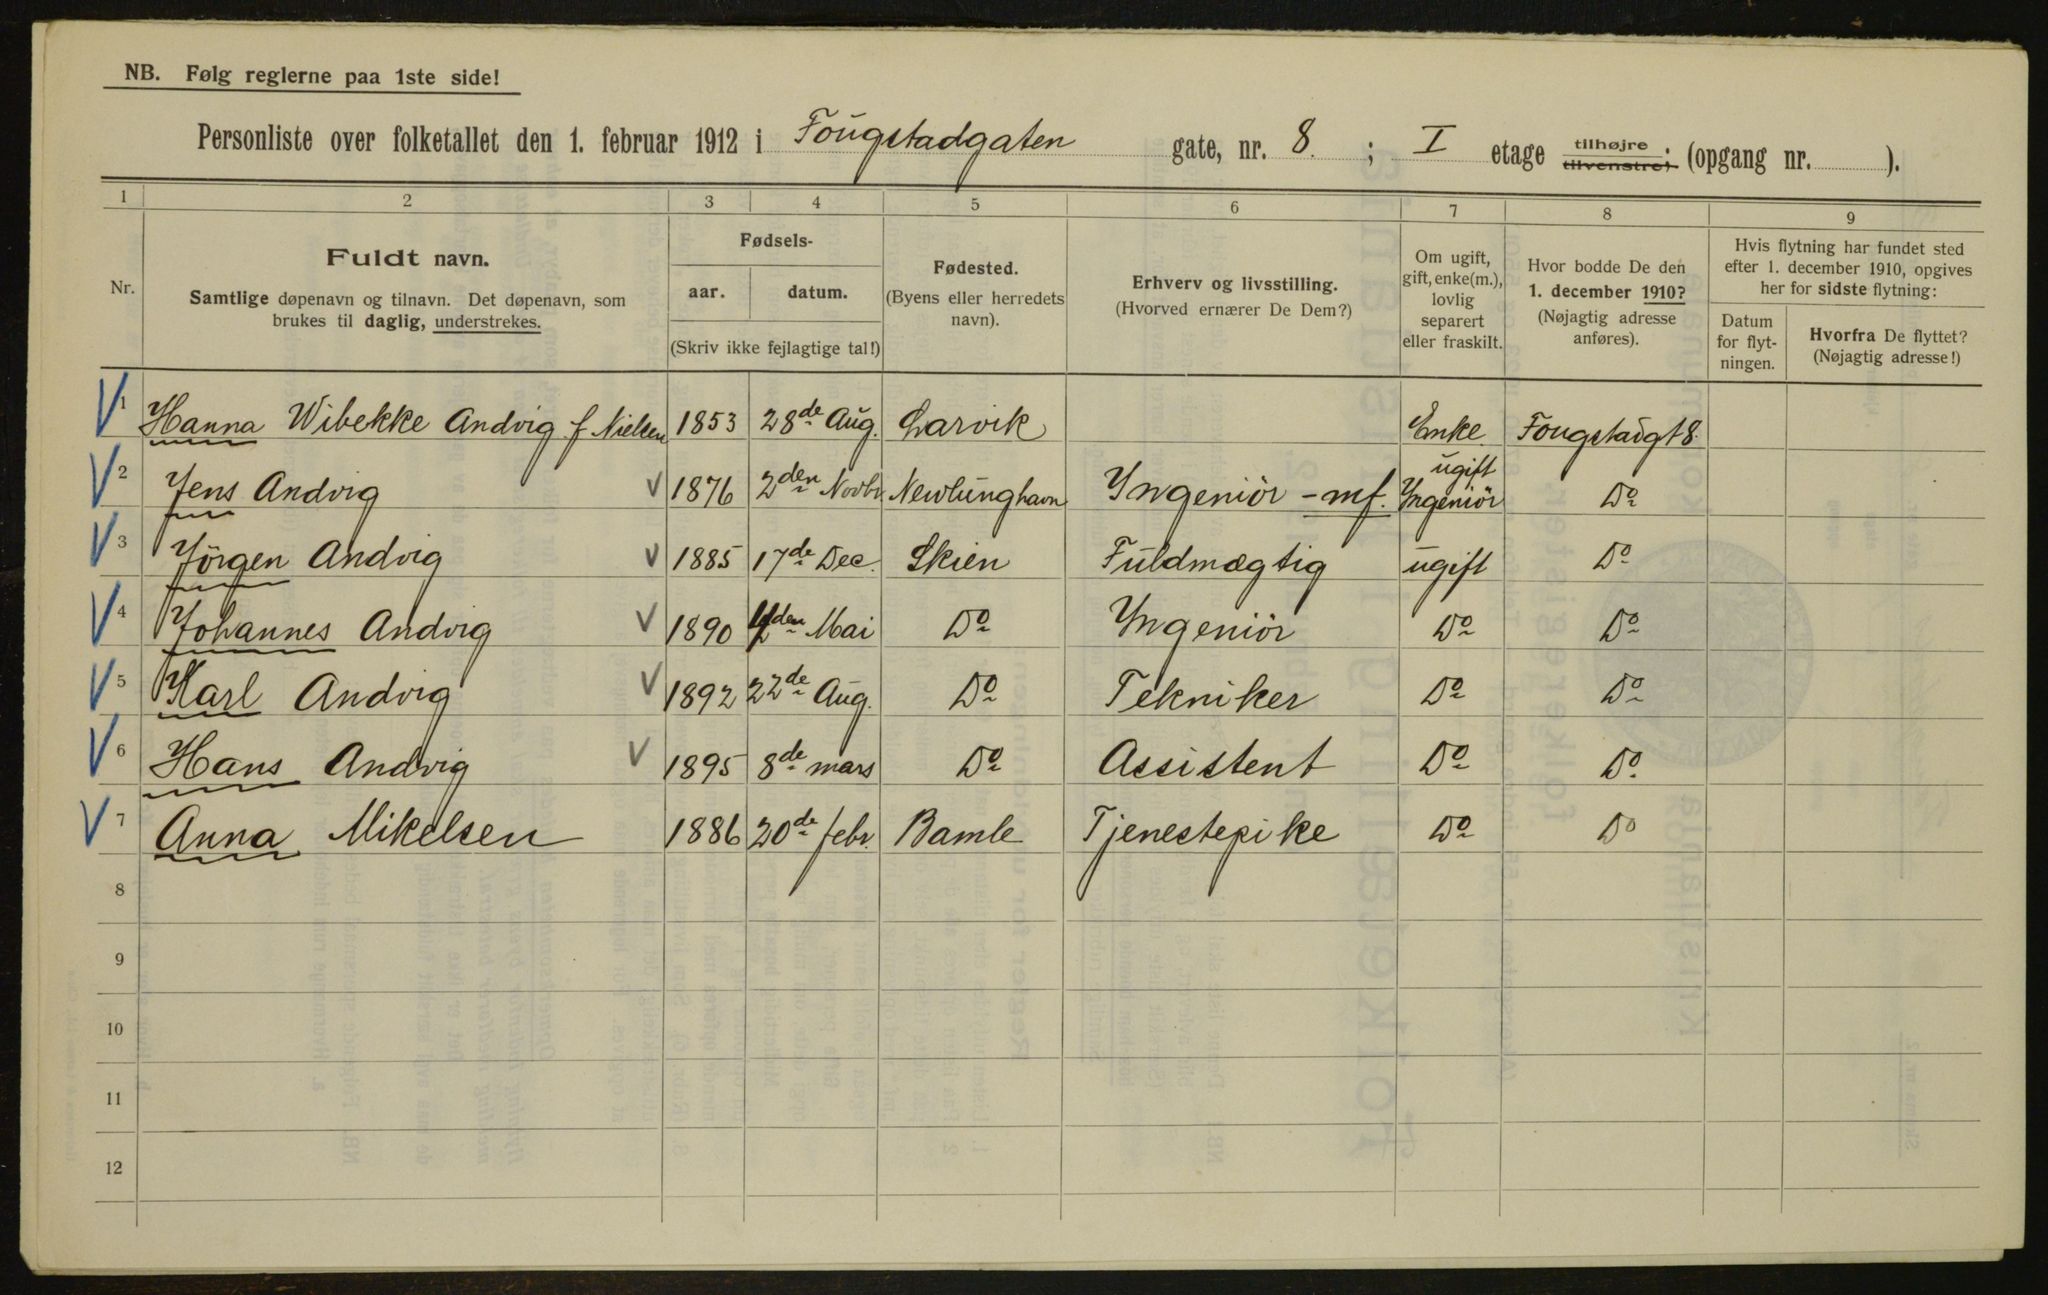 NB. Følg reglerne paa 1ste side!
Personliste over folketallet den 1. februar 1912 i Fougstadgaten gate, nr. 8. ; I etage tilhøjre tilvenstre; (opgang nr. ).
1 2 3 4 5 6 7 8 9
Nr.
Fuldt navn.
Samtlige døpenavn og tilnavn. Det døpenavn, som
brukes til daglig, understrekes.
Fødsels-
aar. datum.
(Skriv ikke fejlagtige tal!)
Fødested.
(Byens eller herredets
navn).
Erhverv og livsstilling.
(Hvorved ernærer De Dem?)
Om ugift,
gift, enke(m.),
lovlig
separert
eller fraskilt.
Hvor bodde De den
1. december 1910?
(Nøjagtig adresse
anføres).
Hvis flytning har fundet sted
efter 1. december 1910, opgives
her for sidste flytning:
Datum
for flyt-
ningen.
Hvorfra De flyttet?
(Nøjagtig adresse!)
1 Hanna Wibekke Andvig f Nielsen 1853 28de Aug. Larvik Enke Fougstadgt 8.
2 Jens Andvig 1876 2den Novbr Nevlunghavn Yngeniör - mf. ugift Yngeniör Do
3 Jörgen Andvig 1885 17de Dec. Skien Fuldmægtig ugift Do
4 Johannes Andvig 1890 den Mai Do Yngeniör Do Do
5 Karl Andvig 1892 22de Aug. Do Tekniker Do Do
6 Hans Andvig 1895 8de mars Do Assistent Do Do
7 Anna Mikelsen 1886 20de febr. Bamle Tjenestepike Do Do
8
9
10
11
12